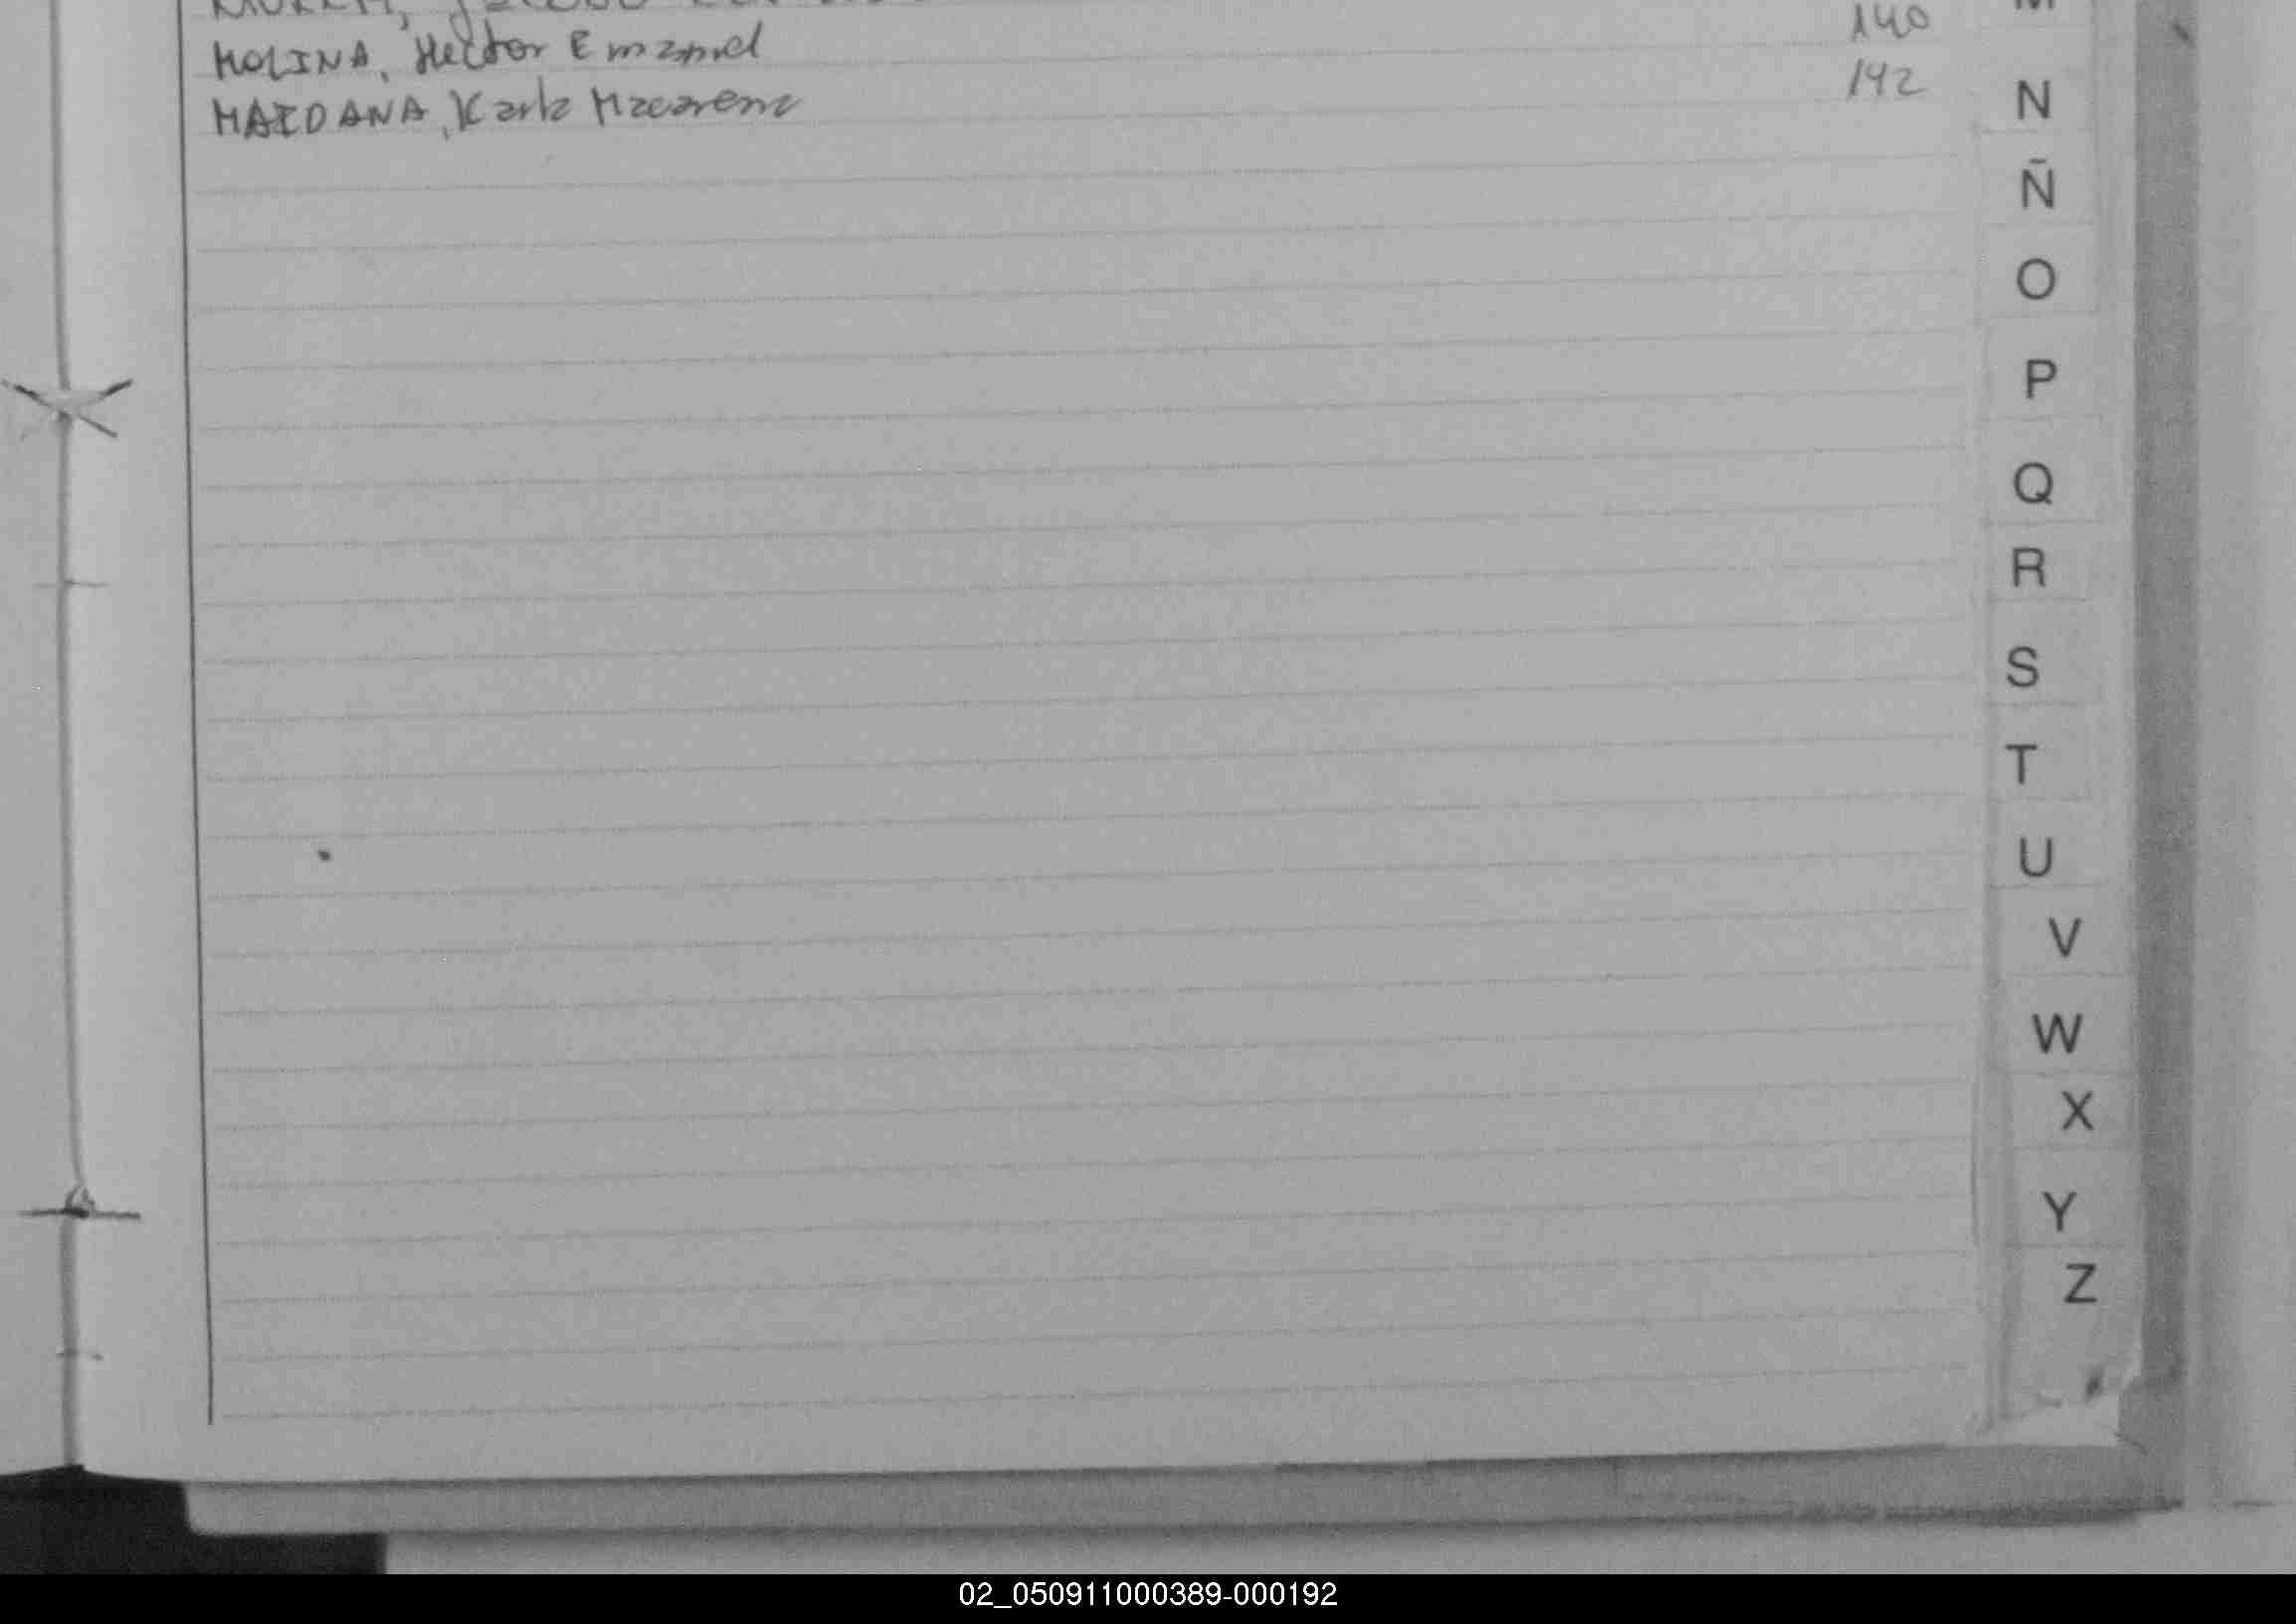 140
MOLINA, Hector Emanuel
MAIDANA, Karla Macarena 142
M
N
Ñ
O
P
Q
R
S
T
U
V
W
X
Y
Z
02_050911000389-000192